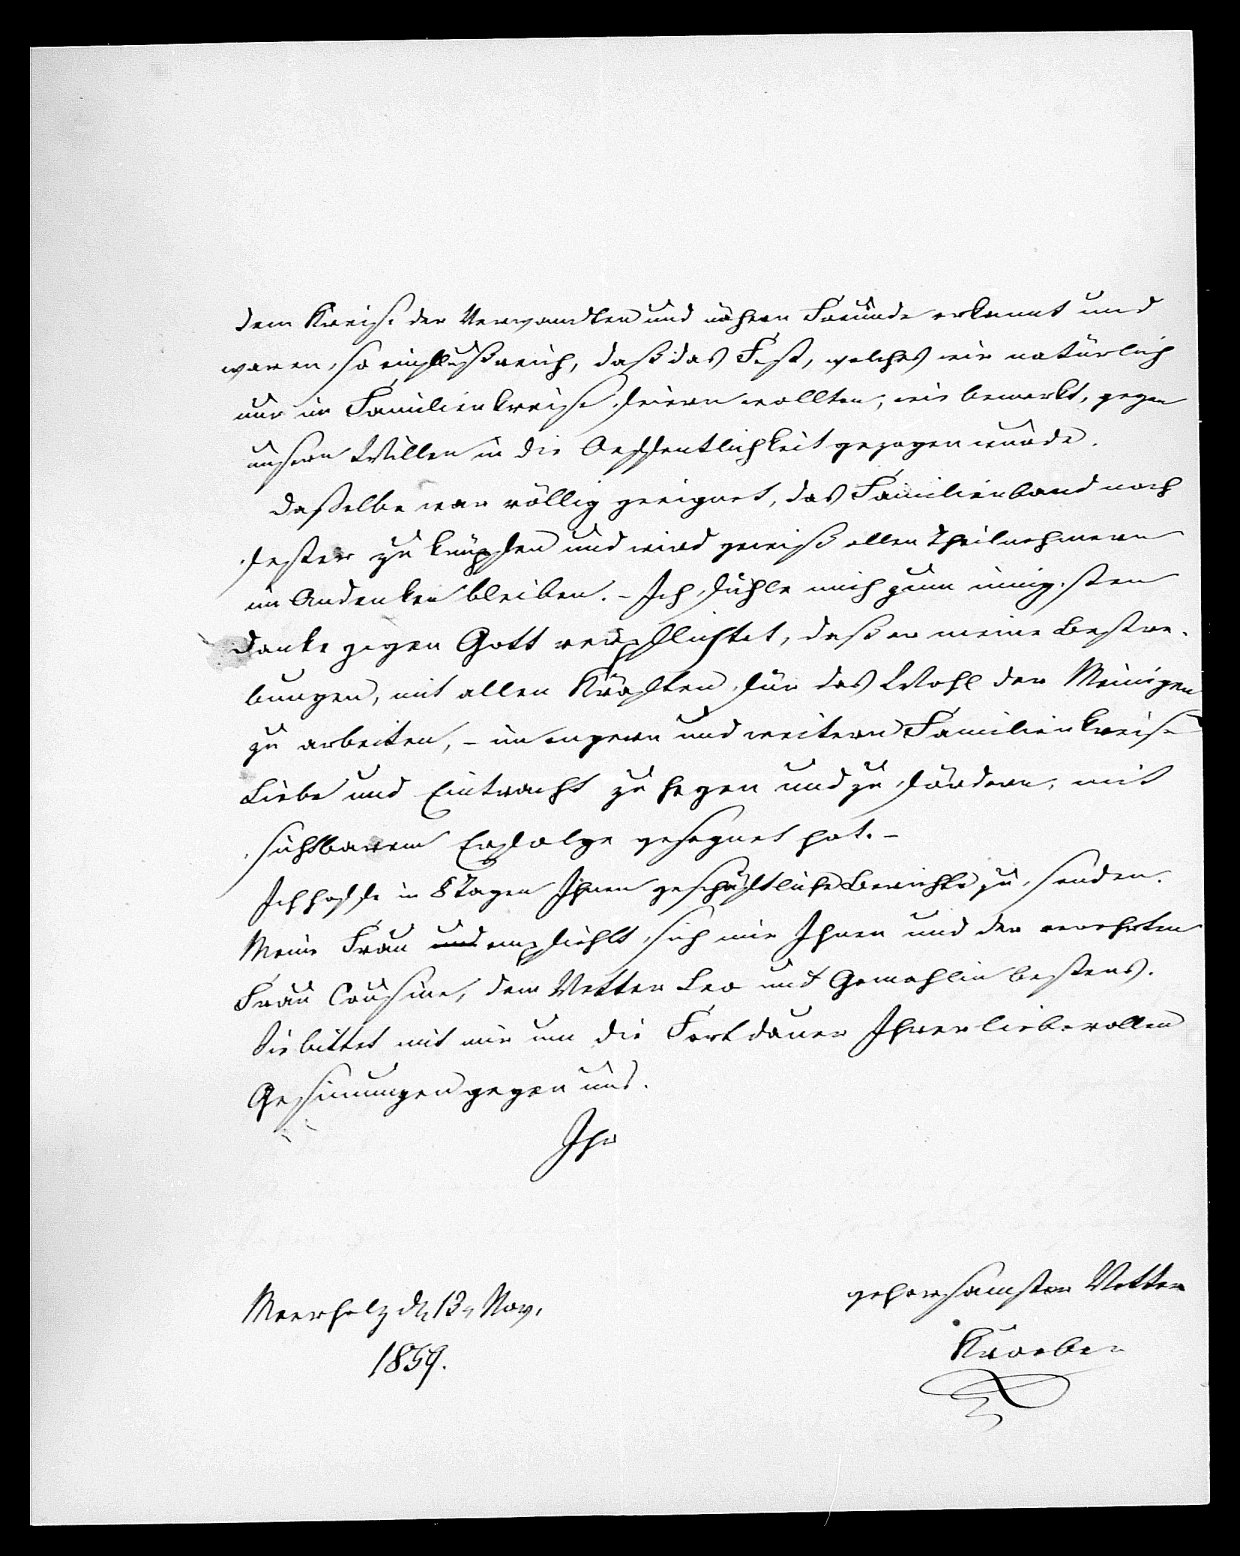 dem Kreise der Verwandten und nähern Freunde erkannt und
waren, so einflußreich, daß das Fest, welches wir natürlich
nur im Familienkreise feiern wollten, wie bemerkt, gegen
unsern Willen in die Oeffentlichkeit gezogen wurde.
Dasselbe war völlig geeignet, das Familienband noch
fester zu knüpfen und wird gewiß allen Theilnehmern
im Andenken bleiben. – Ich fühle mich zum innigsten
Danke gegen Gott verpflichtet, daß er meine Bestre-
bungen, mit allen Kräften für das Wohl der Meinigen
zu arbeiten, – im engern und weitern Familienkreise
Liebe und Eintracht zu hegen und zu fördern, mit
sichtbarem Erfolge gesegnet hat. –
Ich hoffe in 8 Tagen Ihnen geschäftliche Berichte zu senden.
Meine Frau und empfiehlt sich mir Ihnen und der verehrten
Frau Cousine, dem Vetter Leo und Gemahlin bestens.
Sie bittet mit mir um die Fortdauer Ihrer liebevollen
Gesinnungen gegen uns.
Ihr
gehorsamster Vetter
Kroeber
Meerholz d. 13. Nov.
1859.